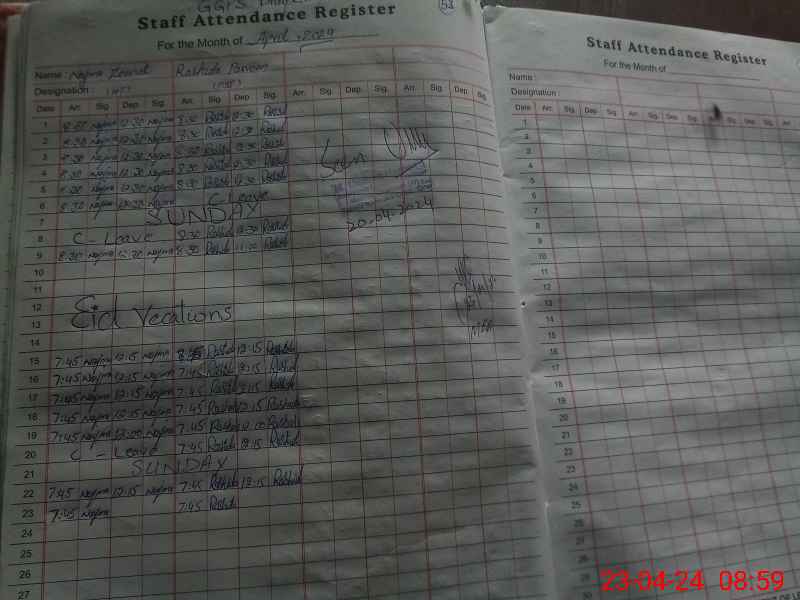 GGPS
58
Staff Attendance Register
For the Month of April, 2024
Name : Najma Zeenat Rashida Parveen
Designation : (PST)
Date Arr. Sig. Dep. Sig. Arr. Sig. Dep. Sig. Arr. Sig. Dep. Sig. Arr. Sig. Dep. Sig.
1 Najma 12:30 Najma 8:30 Rashid 12:30 Rashid
2 8:30 Najma 12:30 Najma 8:30 Rashid 12:30 Rashid
3 8:30 Najma 12:30 Najma 8:30 Rashid 12:30 Rashid
4 8:30 Najma 12:30 Najma 8:30 Rashid 12:30 Rashid
5 8:30 Najma 12:30 Najma 8:30 Rashid 12:30 Rashid
6 8:30 Najma 12:30 Najma C-Leave
7 SUNDAY
8 C - Leave 8:30 Rashid 12:30 Rashid
9 8:30 Najma 12:30 Najma 8:30 Rashid Rashid
Seen
20-04-2024
10
11
12 Eid Vecations
13
14
15 7:45 Najma 12:15 Najma Rashid 12:15 Rashid
16 7:45 Najma 12:15 Najma 7:45 Rashid 12:15 Rashid
17 7:45 Najma 12:15 Najma 7:45 Rashid 12:15 Rashid
18 7:45 Najma 12:15 Najma 7:45 Rashid 12:15 Rashid
19 7:45 Najma 12:00 Najma 7:45 Rashid 12:00 Rashid
20 C - Leave 7:45 Rashid 12:15 Rashid
21 SUNDAY
22 7:45 Najma 12:15 Najma 7:45 Rashid 12:15 Rashid
23 7:45 Najma 7:45 Rashid
24
25
26
27
Staff Attendance Register
For the Month of
Name :
Designation :
Date Arr. Sig. Dep. Sig. Arr. Sig. Dep. Sig. Arr. Sig. Dep. Sig.
1
2
3
4
5
6
7
8
9
10
11
12
13
14
15
16
17
18
19
20
21
22
23
24
25
26
27
28
29
30
23-04-24 08:59